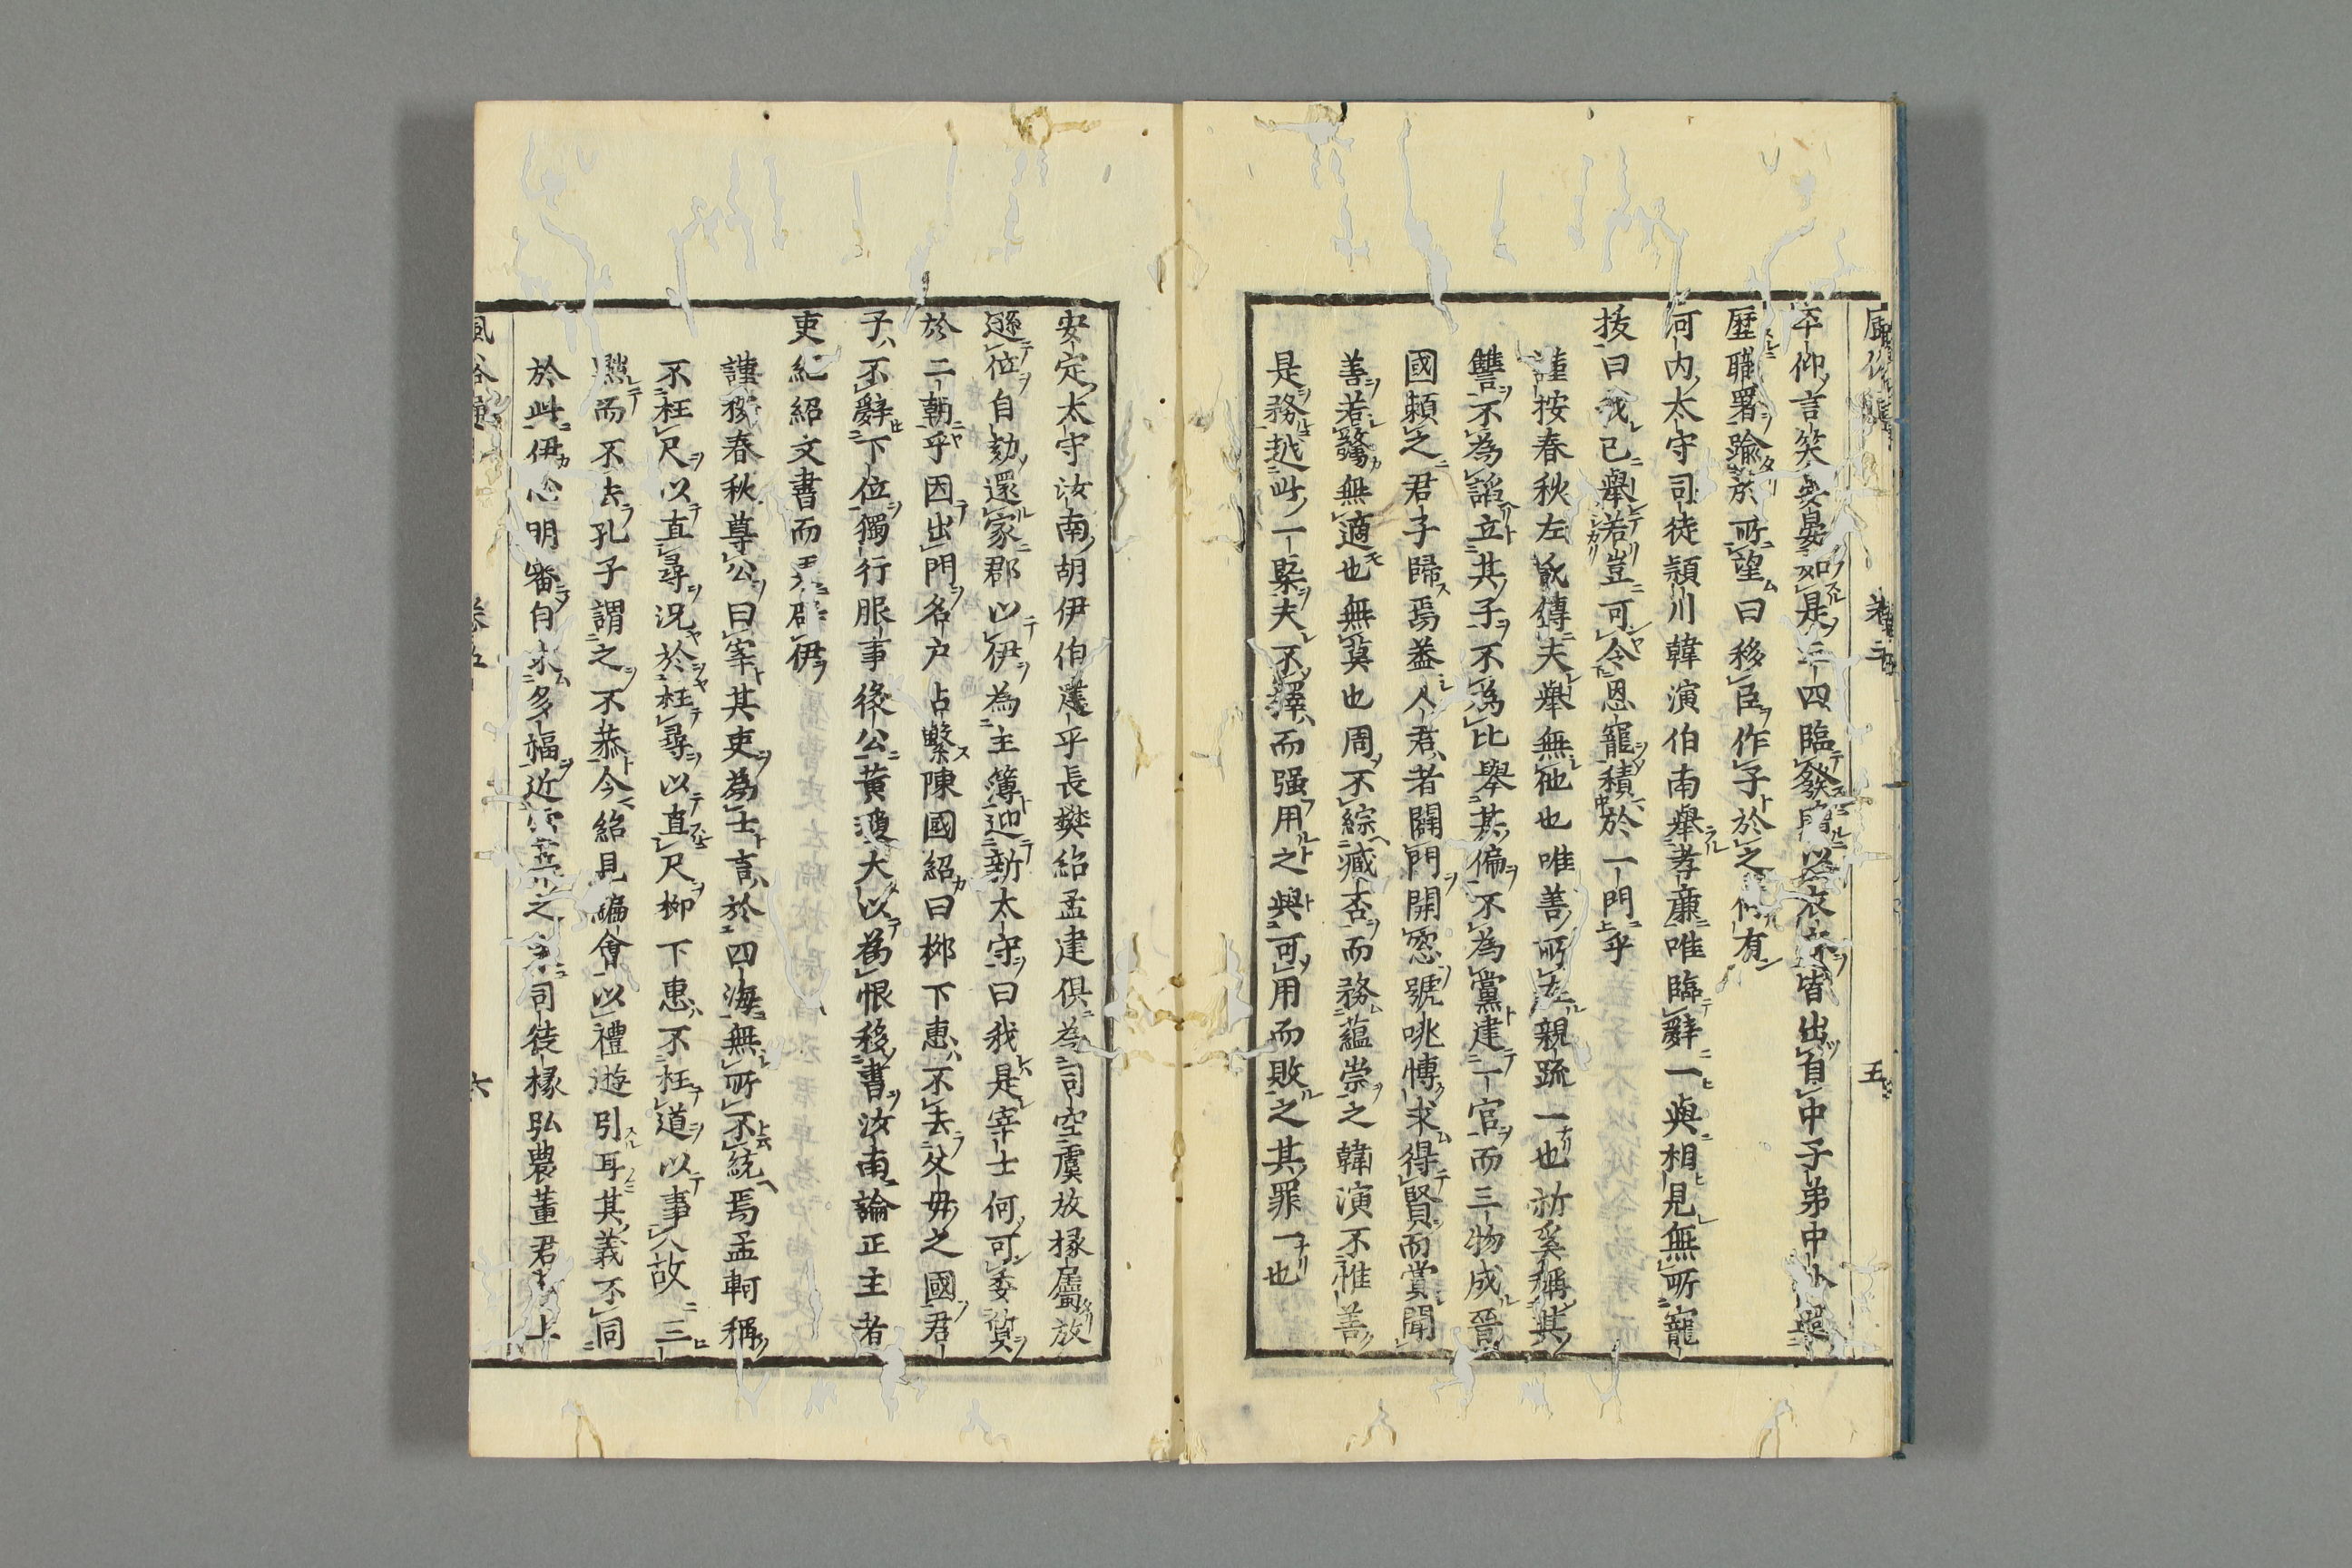 風俗通 卷五 五
卒仰言笑與晏如是三四臨發贈以衣皆出自中子弟中外
歷職署踰於所望曰移臣作子於之何有
河内太守司徒潁川韓演伯南舉孝廉唯臨辭一與相見無所寵
拔曰我已舉若豈可令恩寵積於一門乎
謹按春秋左氏傳夫舉無他也唯善所在親疏一也祈奚稱其
讐不為謟立其子不為比舉其偏不為黨建一官而三物成晉
國頼之君子歸焉盖人君者闢門開窓號咷博求得賢而賞聞
善若驚無適也無莫也周不綜臧否而務蘊崇之韓演不惟善
是務越此一槩夫不擇而强用之與可用而敗之其罪一也
安定太守汝南胡伊伯建平長樊紹孟建俱為司空虞放掾屬放
遜位自劾還家郡以伊為主簿迎新太守曰我是宰士何可委質
於二朝乎因出門名户占繫陳國紹曰栁下惠不去父母之國君
子不辭下位獨行服事後公黄瓊大以為恨移書汝南論正主者
吏紀紹文書而更辟伊
謹按春秋尊公曰宰其吏為士言於四海無所不統焉孟軻稱
不枉尺以直尋况於枉尋以直尺栁下惠不枉道以事人故三
黜而不去孔子謂之不恭今紹見編會以禮遊引耳其義不同
於此伊心明審自求多福近之司徒掾弘農董君考上
風俗通 卷五 六